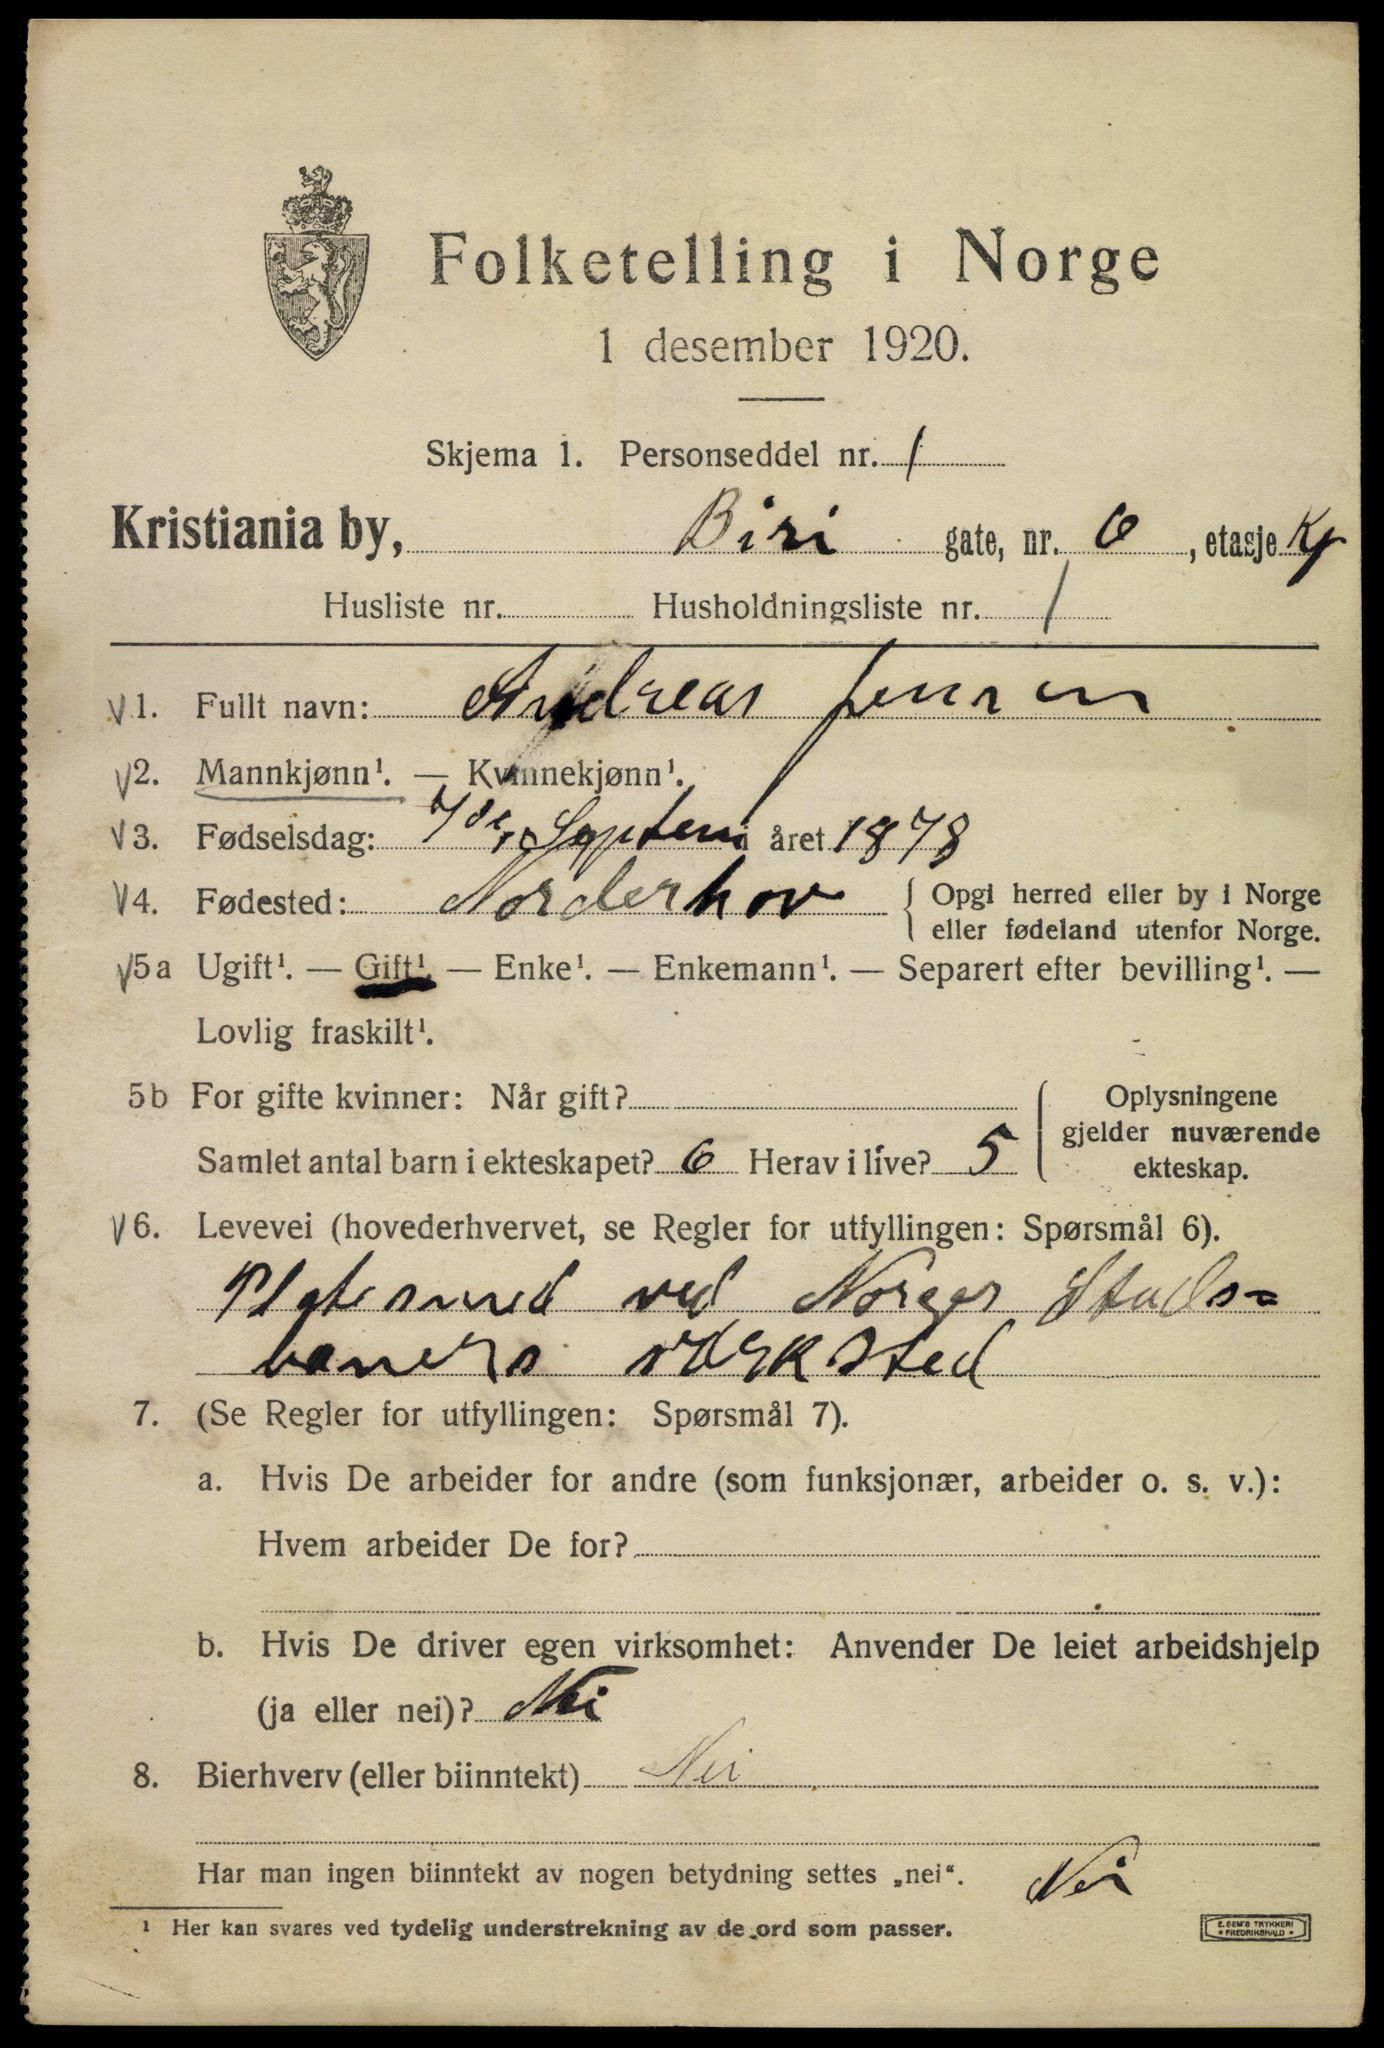 Folketelling i Norge
1 desember 1920.
Skjema 1. Personseddel nr. 1
Kristiania by, Biri gate, nr. 6, etasje Kj
Husliste nr. Husholdningsliste nr. 1
V1. Fullt navn: Andreas Jensen
V2. Mannkjønn¹. — Kvinnekjønn¹.
V3. Fødselsdag: 7de Septem i året 1878
V4. Fødested: Norderhov { Opgi herred eller by i Norge
eller fødeland utenfor Norge.
V5a Ugift¹. — Gift¹. — Enke¹. — Enkemann¹. — Separert efter bevilling¹. —
Lovlig fraskilt¹.
5b For gifte kvinner: Når gift? { Oplysningene
gjelder nuværende
Samlet antal barn i ekteskapet? 6 Herav i live? 5
ekteskap.
V6. Levevei (hovederhvervet, se Regler for utfyllingen: Spørsmål 6).
Platesmed ved Norges Stads=
baners værksted
7. (Se Regler for utfyllingen: Spørsmål 7).
a. Hvis De arbeider for andre (som funksjonær, arbeider o. s. v.):
Hvem arbeider De for?
b. Hvis De driver egen virksomhet: Anvender De leiet arbeidshjelp
(ja eller nei)? Nei
8. Bierhverv (eller biinntekt) Nei
Har man ingen biinntekt av nogen betydning settes „nei“. Nei
¹ Her kan svares ved tydelig understrekning av de ord som passer.
E. SEM'S TRYKKERI
• FREDRIKSHALD •